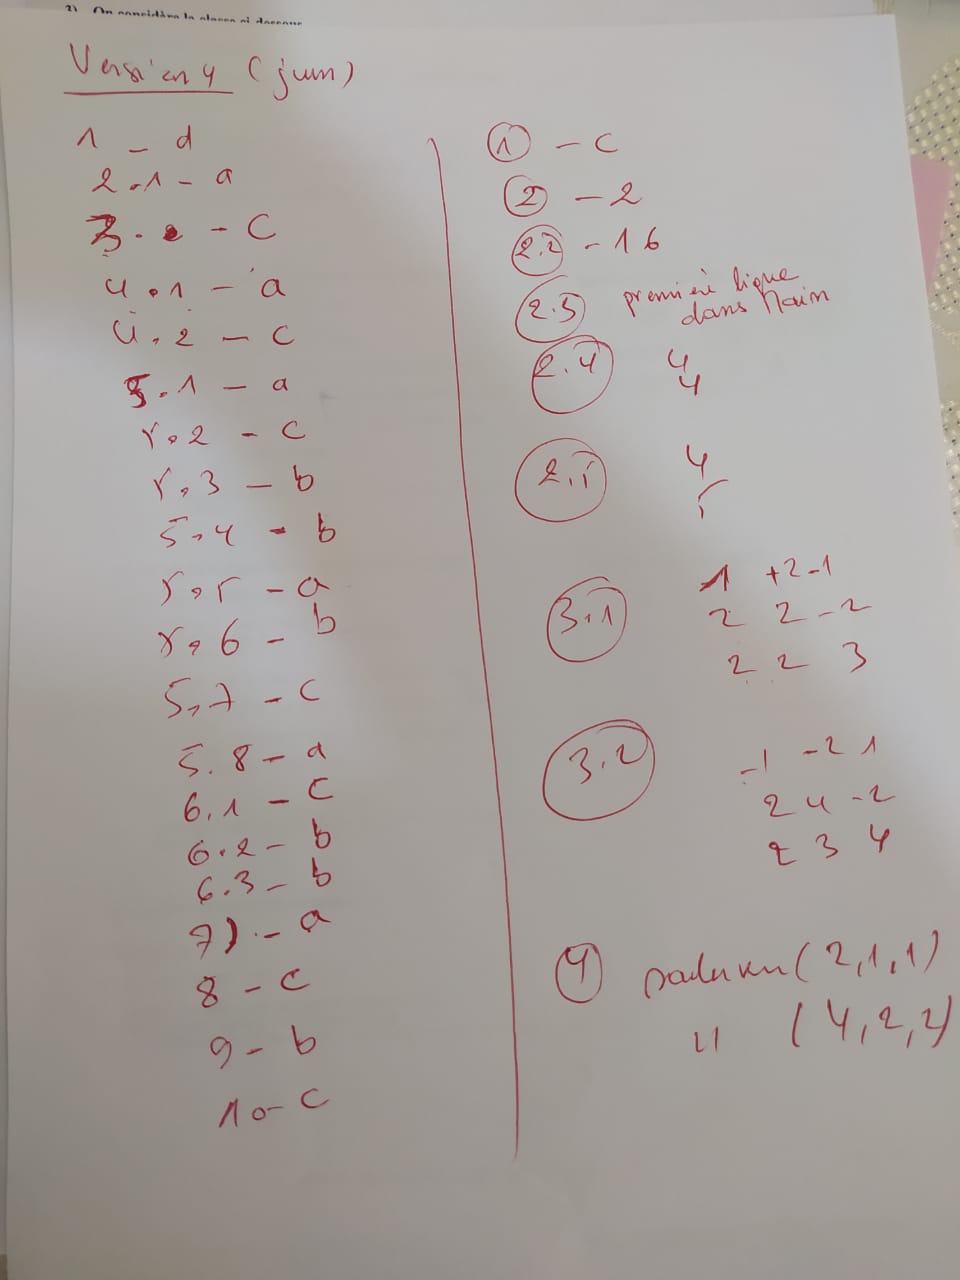 2) On considère la classe ci-dessous
Version 4 (juin)
1 - d
2.1 - a
3. - c
4.1 - a
4.2 - c
5.1 - a
5.2 - c
5.3 - b
5.4 - b
5.5 - a
5.6 - b
5.7 - c
5.8 - a
6.1 - c
6.2 - b
6.3 - b
7) - a
8 - c
9 - b
10 - c
1 - c
2 - 2
2.2 - 16
2.3 première ligne
dans Main
2.4 4
4
2.5 4
5
3.1 1 +2 -1
2 2 -2
2 2 3
3.2 -1 -2 1
2 4 -2
2 3 4
4 (2,1,1)
" (4,2,2)